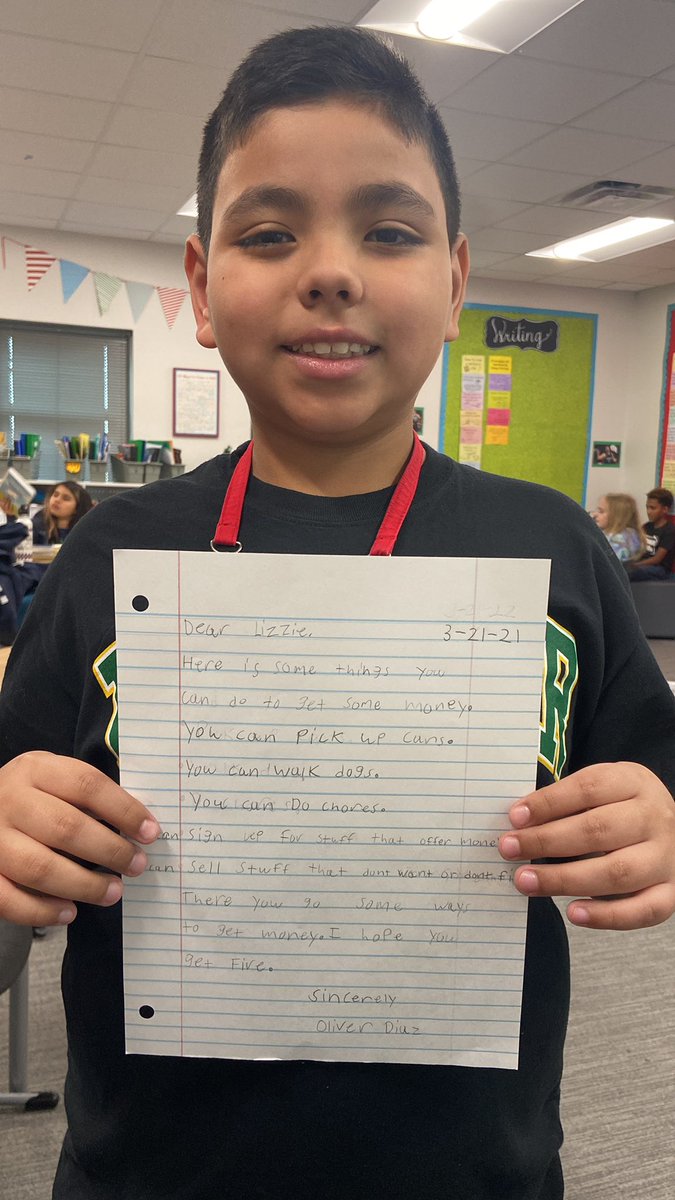 Writing
3-21-21
Dear Lizzie,
Here is some things you
can do to get some money.
You can Pick up cans.
You can walk dogs.
You can Do chores.
can sign up for stuff that offer
can sell stuff that dont want or dont
There you go some ways
to get money. I hope you
get Five.
Sincerely
Oliver Diaz
R